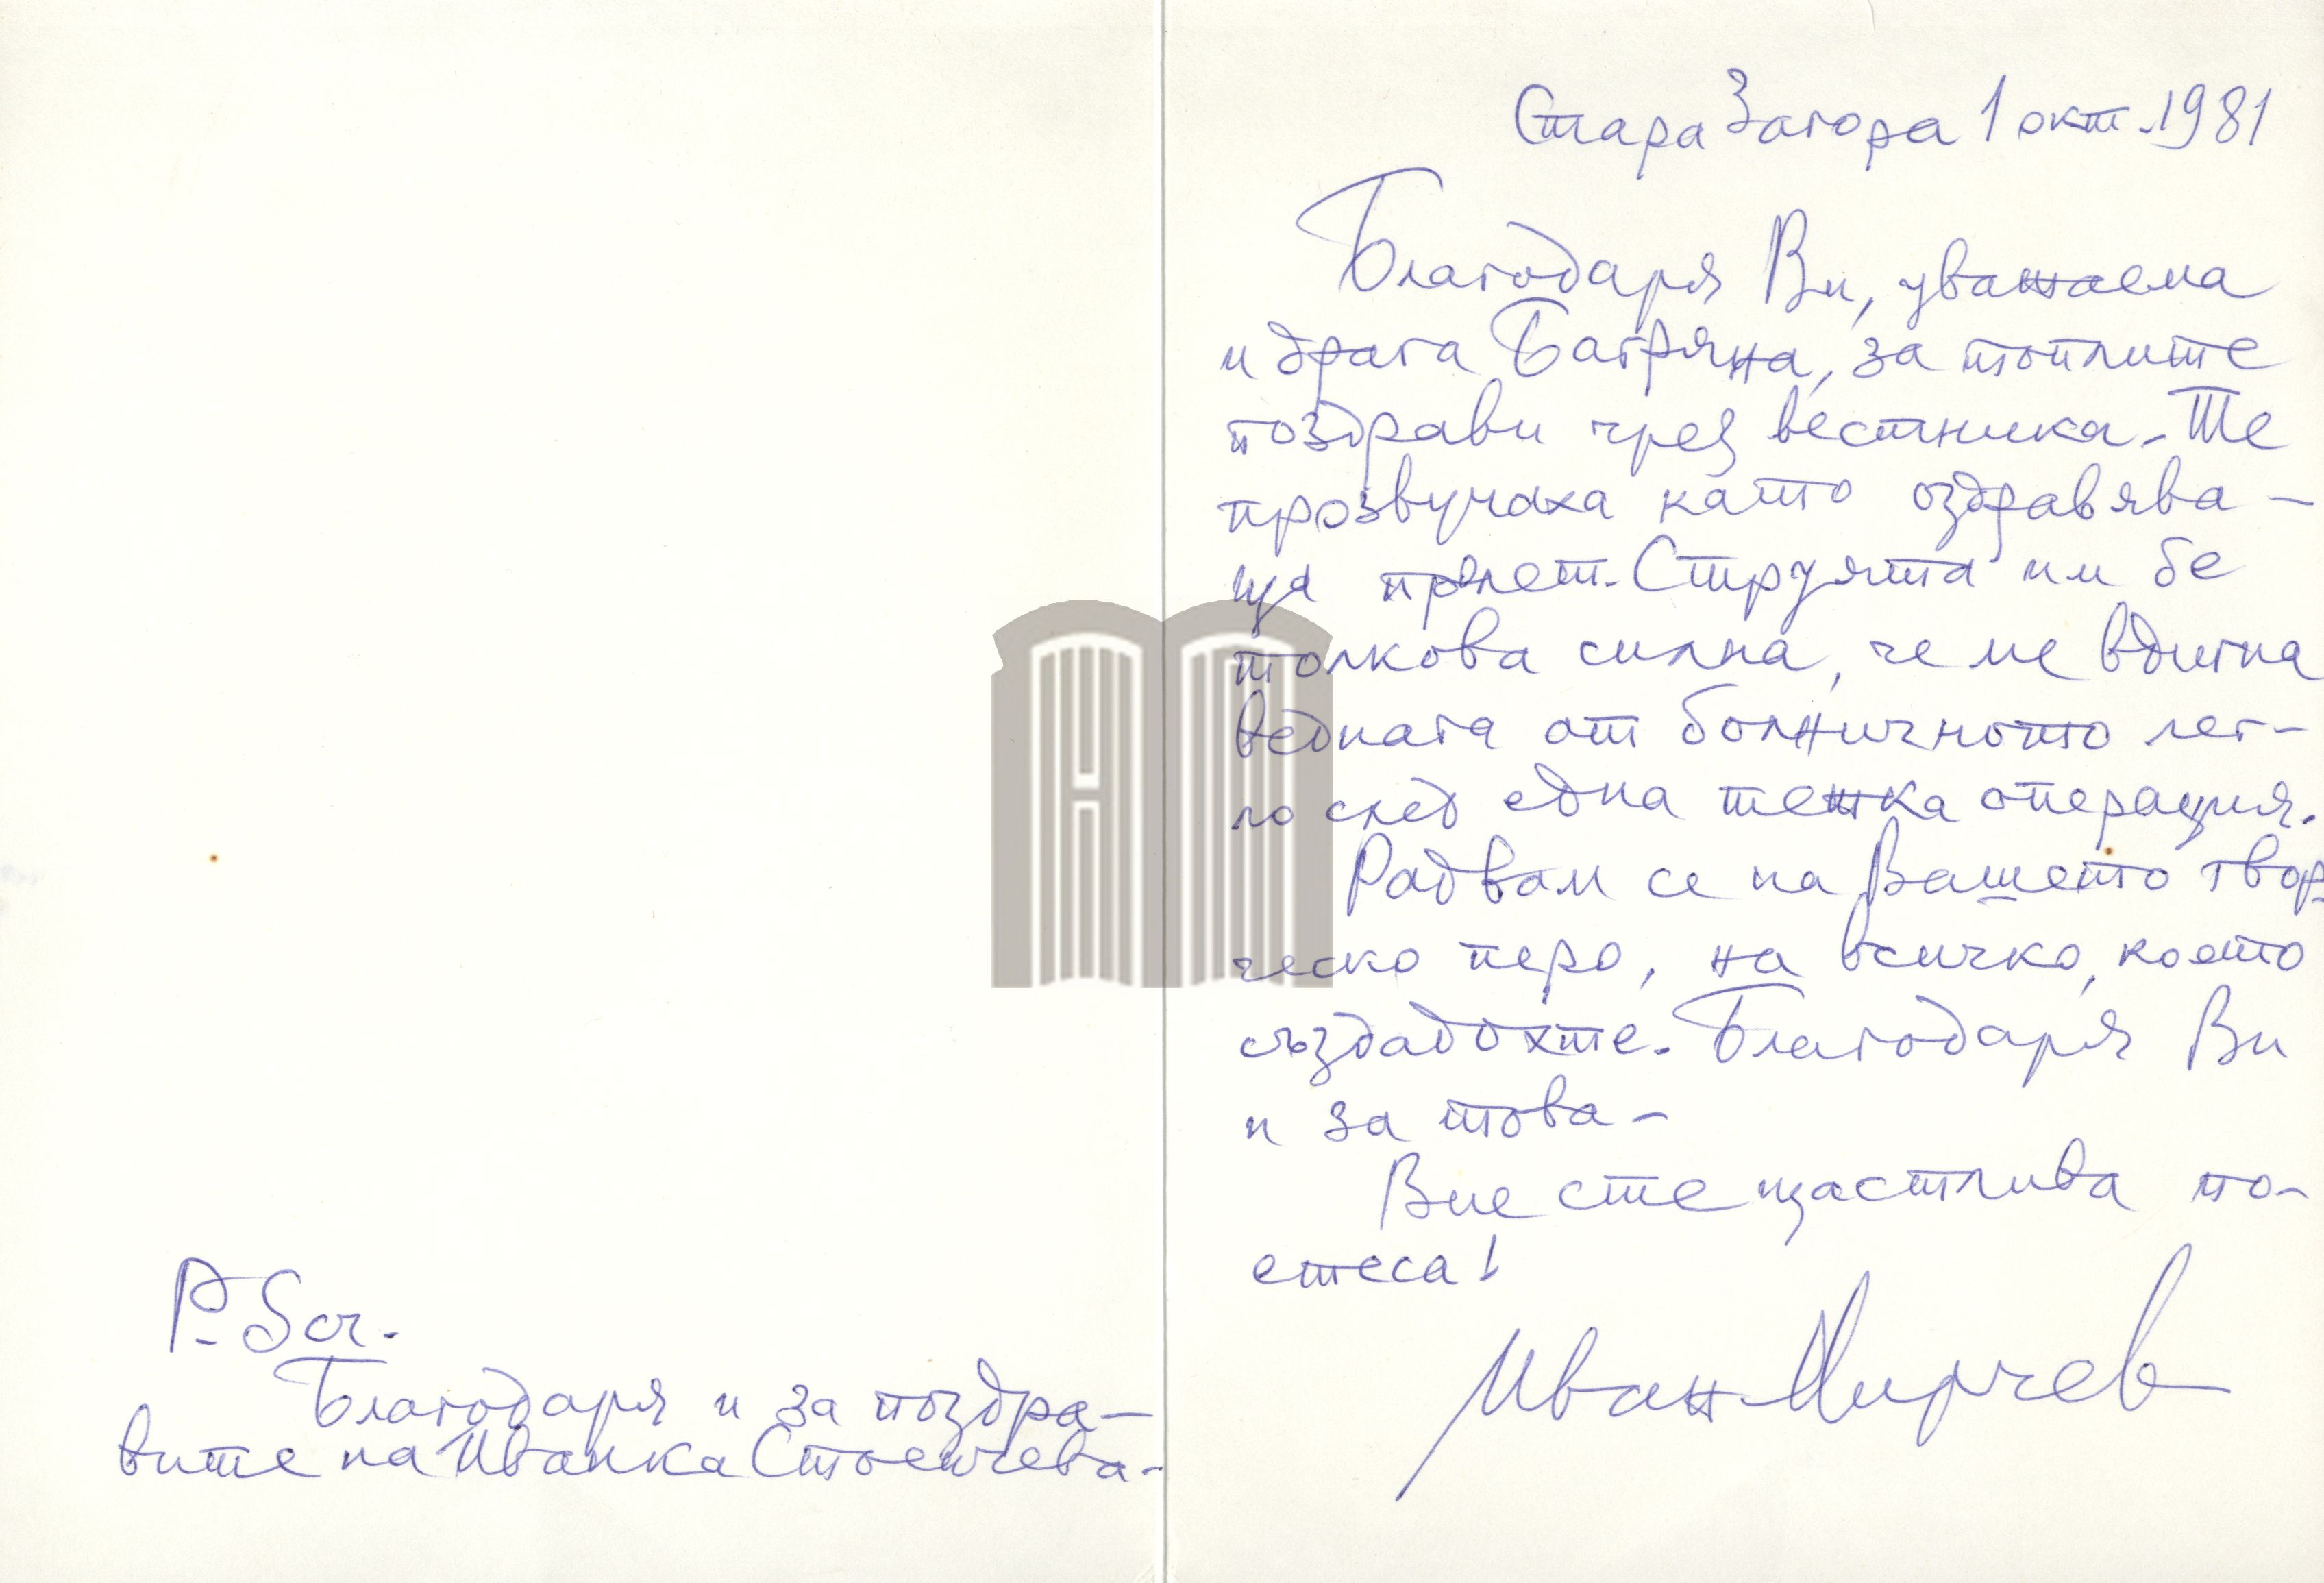 Стара Загора 1 окт. 1981
Благодаря Ви, уважаема
и драга Багряна, за топлите
поздрави чрез вестника. Те
прозвучаха като оздравява-
ща пролет. Струята им бе
толкова силна, че ме вдигна
веднага от болничното лег-
ло след една тежка операция.
Радвам се на Вашето твор-
ческо перо, на всичко, което
създадохте. Благодаря Ви
и за това.
Вие сте щастлива по-
етеса!
Иван Мирчев
P. Scr.
Благодаря и за поздра-
вите на Иванка Стоенчева.